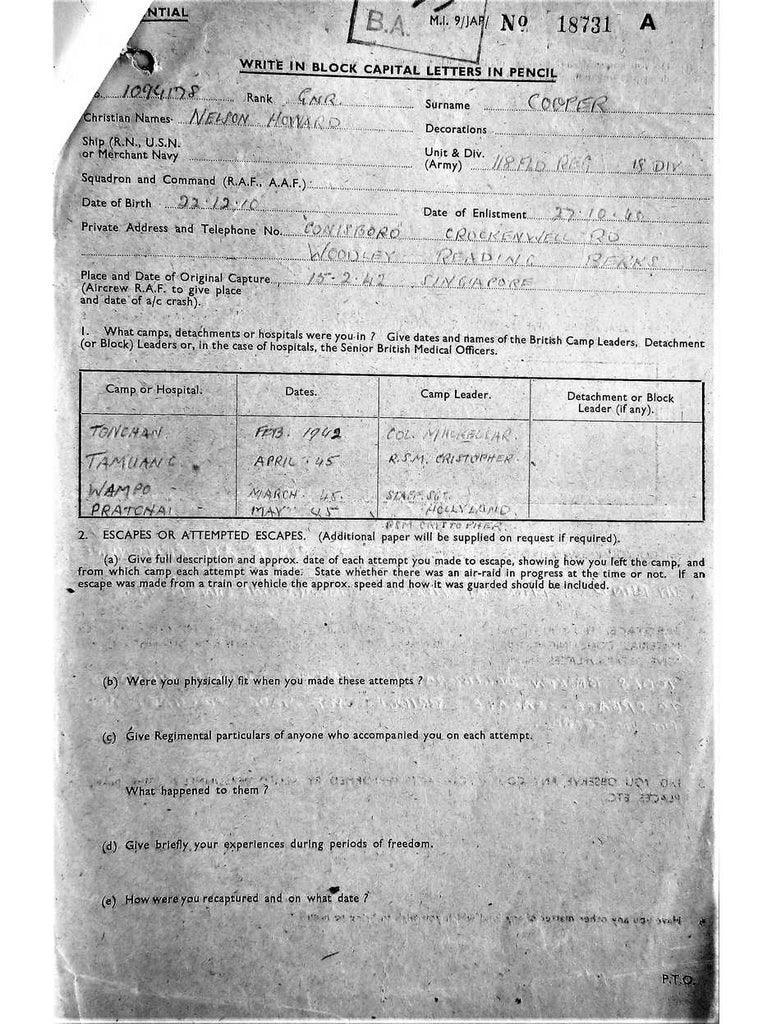 NTIAL
B.A. M.I. 9/JAP/ No 18731 A
WRITE IN BLOCK CAPITAL LETTERS IN PENCIL
1094178 Rank GNR. Surname COOPER
Christian Names NELSON HOWARD
Decorations
Ship (R.N., U.S.N.
or Merchant Navy
Unit & Div.
(Army) 118 FLD REG 18 DIV
Squadron and Command (R.A.F., A.A.F.)
Date of Birth 22.12.10 Date of Enlistment 27.10.40
Private Address and Telephone No. CONISBORO CROCKENWELL RD
WOODLEY READING BERKS
Place and Date of Original Capture 15-2-42 SINGAPORE
(Aircrew R.A.F. to give place
and date of a/c crash).
1. What camps, detachments or hospitals were you in ? Give dates and names of the British Camp Leaders, Detachment
(or Block) Leaders or, in the case of hospitals, the Senior British Medical Officers.
Camp or Hospital. Dates. Camp Leader. Detachment or Block
Leader (if any).
TONCHAN FEB. 1942 COL. MACKELLAR.
TAMUANG. APRIL. 45 R.S.M. CRISTOPHER.
WAMPO MARCH. 45. STAFF SGT.
HOLLYLAND.
PRATCHAI MAY 45 RSM CRISTOPHER.
2. ESCAPES OR ATTEMPTED ESCAPES. (Additional paper will be supplied on request if required).
(a) Give full description and approx. date of each attempt you made to escape, showing how you left the camp, and
from which camp each attempt was made. State whether there was an air-raid in progress at the time or not. If an
escape was made from a train or vehicle the approx. speed and how it was guarded should be included.
(b) Were you physically fit when you made these attempts ?
(c) Give Regimental particulars of anyone who accompanied you on each attempt.
What happened to them ?
(d) Give briefly your experiences during periods of freedom.
(e) How were you recaptured and on what date ?
P.T.O.